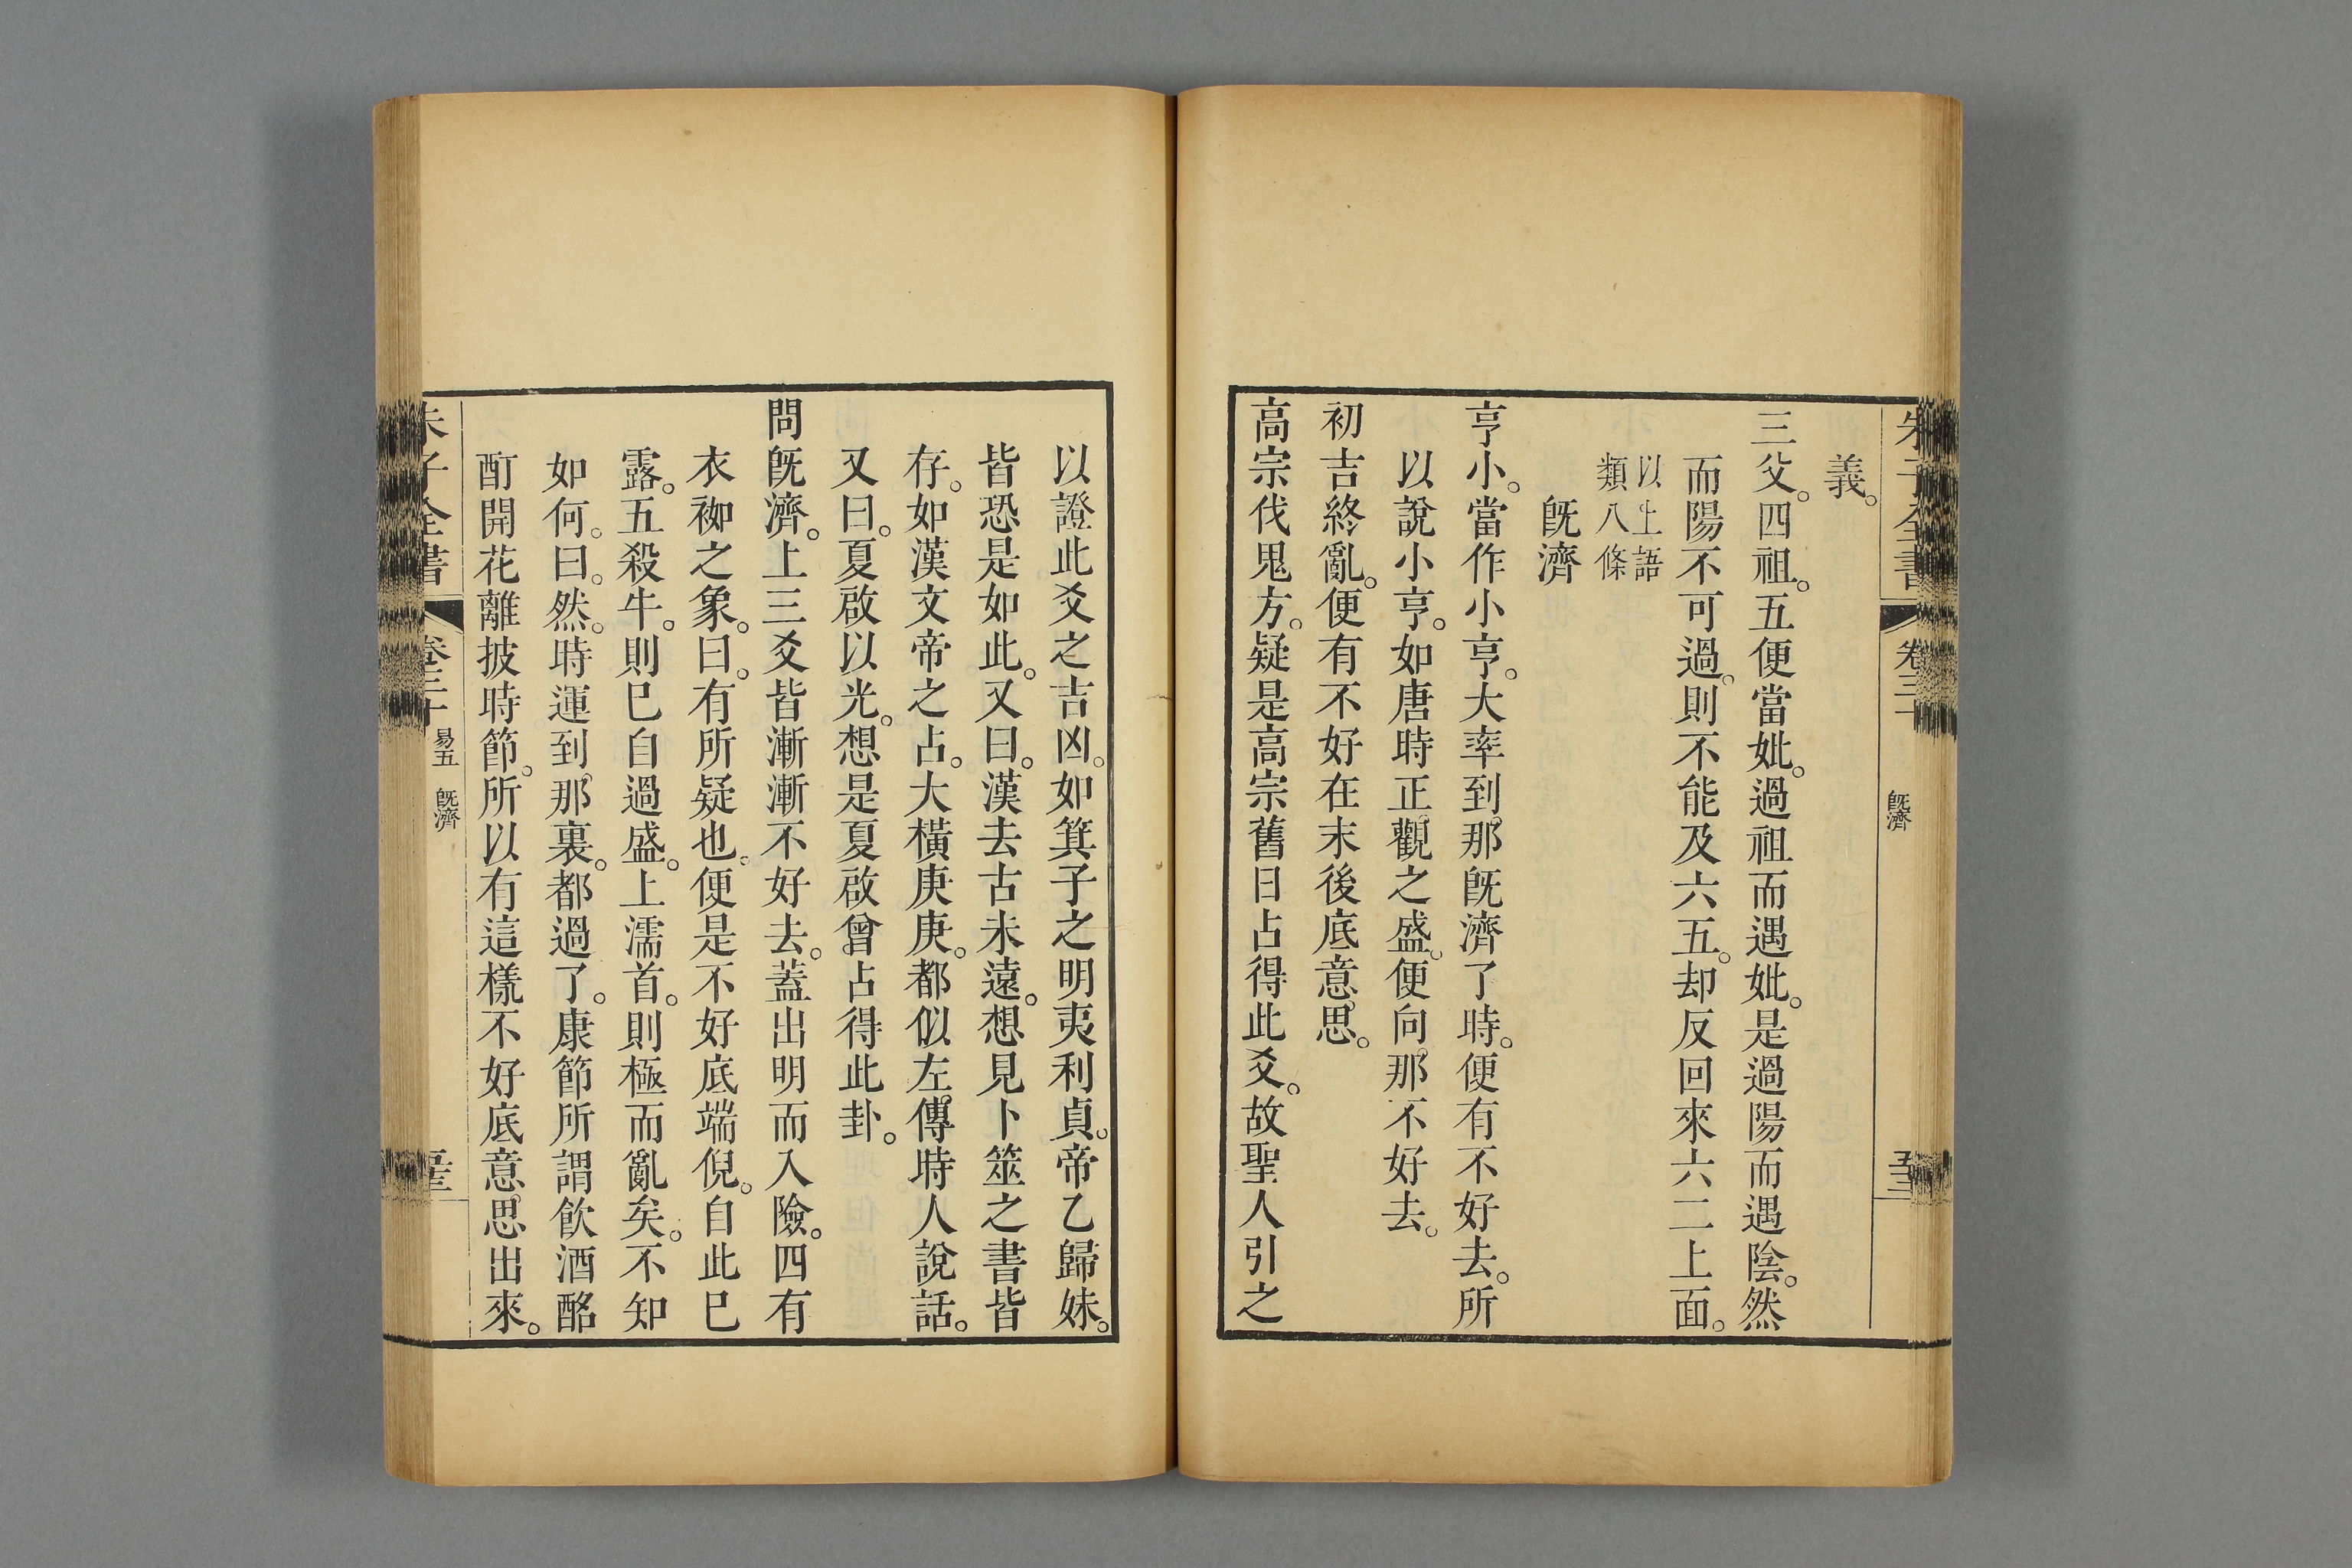 朱子全書 卷三十 旣濟 五十三
義。
三父。四祖。五便當妣。過祖而遇妣。是過陽而遇陰。然
而陽不可過。則不能及六五。却反回來六二上面。
以上語
類八條
旣濟
亨小。當作小亨。大率到那旣濟了時。便有不好去。所
以說小亨。如唐時正觀之盛。便向那不好去。
初吉終亂。便有不好在末後底意思。
高宗伐鬼方。疑是高宗舊日占得此爻。故聖人引之
以證此爻之吉凶。如箕子之明夷利貞。帝乙歸妹。
皆恐是如此。又曰。漢去古未遠。想見卜筮之書皆
存。如漢文帝之占。大橫庚庚。都似左傳時人說話。
又曰。夏啟以光。想是夏啟曾占得此卦。
問旣濟。上三爻皆漸漸不好去。蓋出明而入險。四有
衣袽之象。曰。有所疑也。便是不好底端倪。自此已
露。五殺牛。則已自過盛。上濡首。則極而亂矣。不知
如何。曰。然。時運到那裏。都過了。康節所謂飲酒酩
酊開花離披時節。所以有這樣不好底意思出來。
朱子全書 卷三十 易五 旣濟